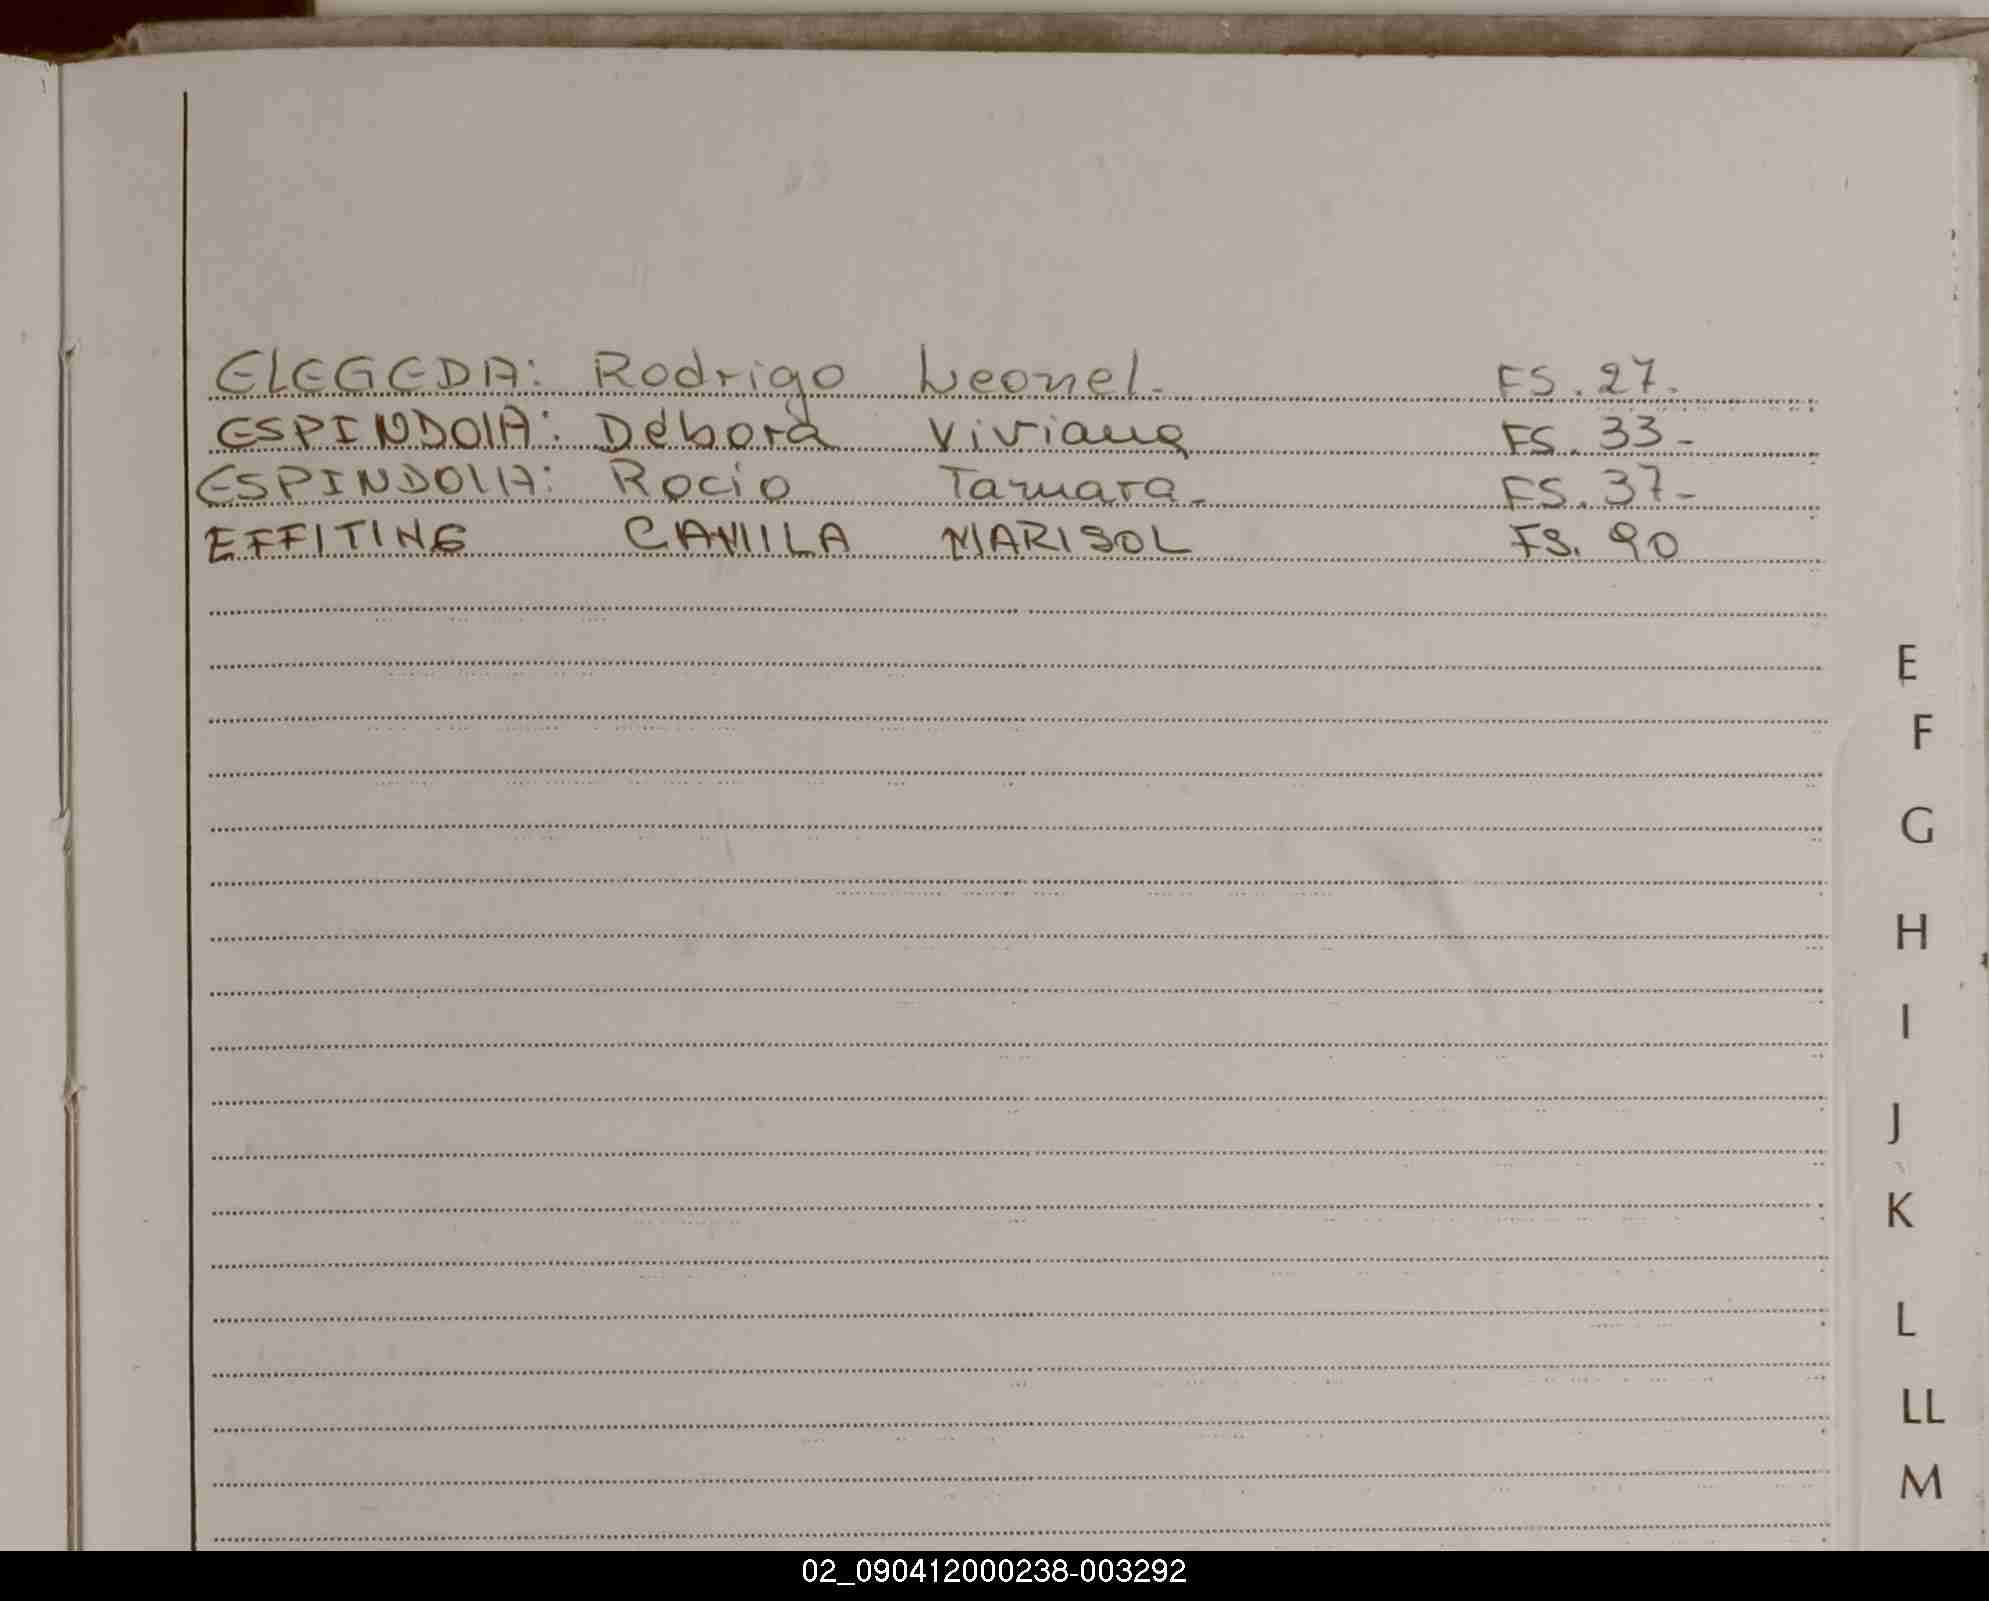 ELEGEDA: Rodrigo Leonel. FS. 27.
ESPINDOLA: Débora Viviana FS. 33-
ESPINDOLA: Rocio Tamara- FS. 37-
EFFITING CAMILA MARISOL FS. 90
E
F
G
H
I
J
K
L
LL
M
02_090412000238-003292